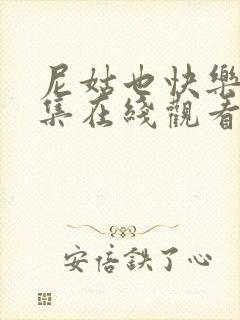 尼姑也快樂
集在綫觀看
安倍鉄了心